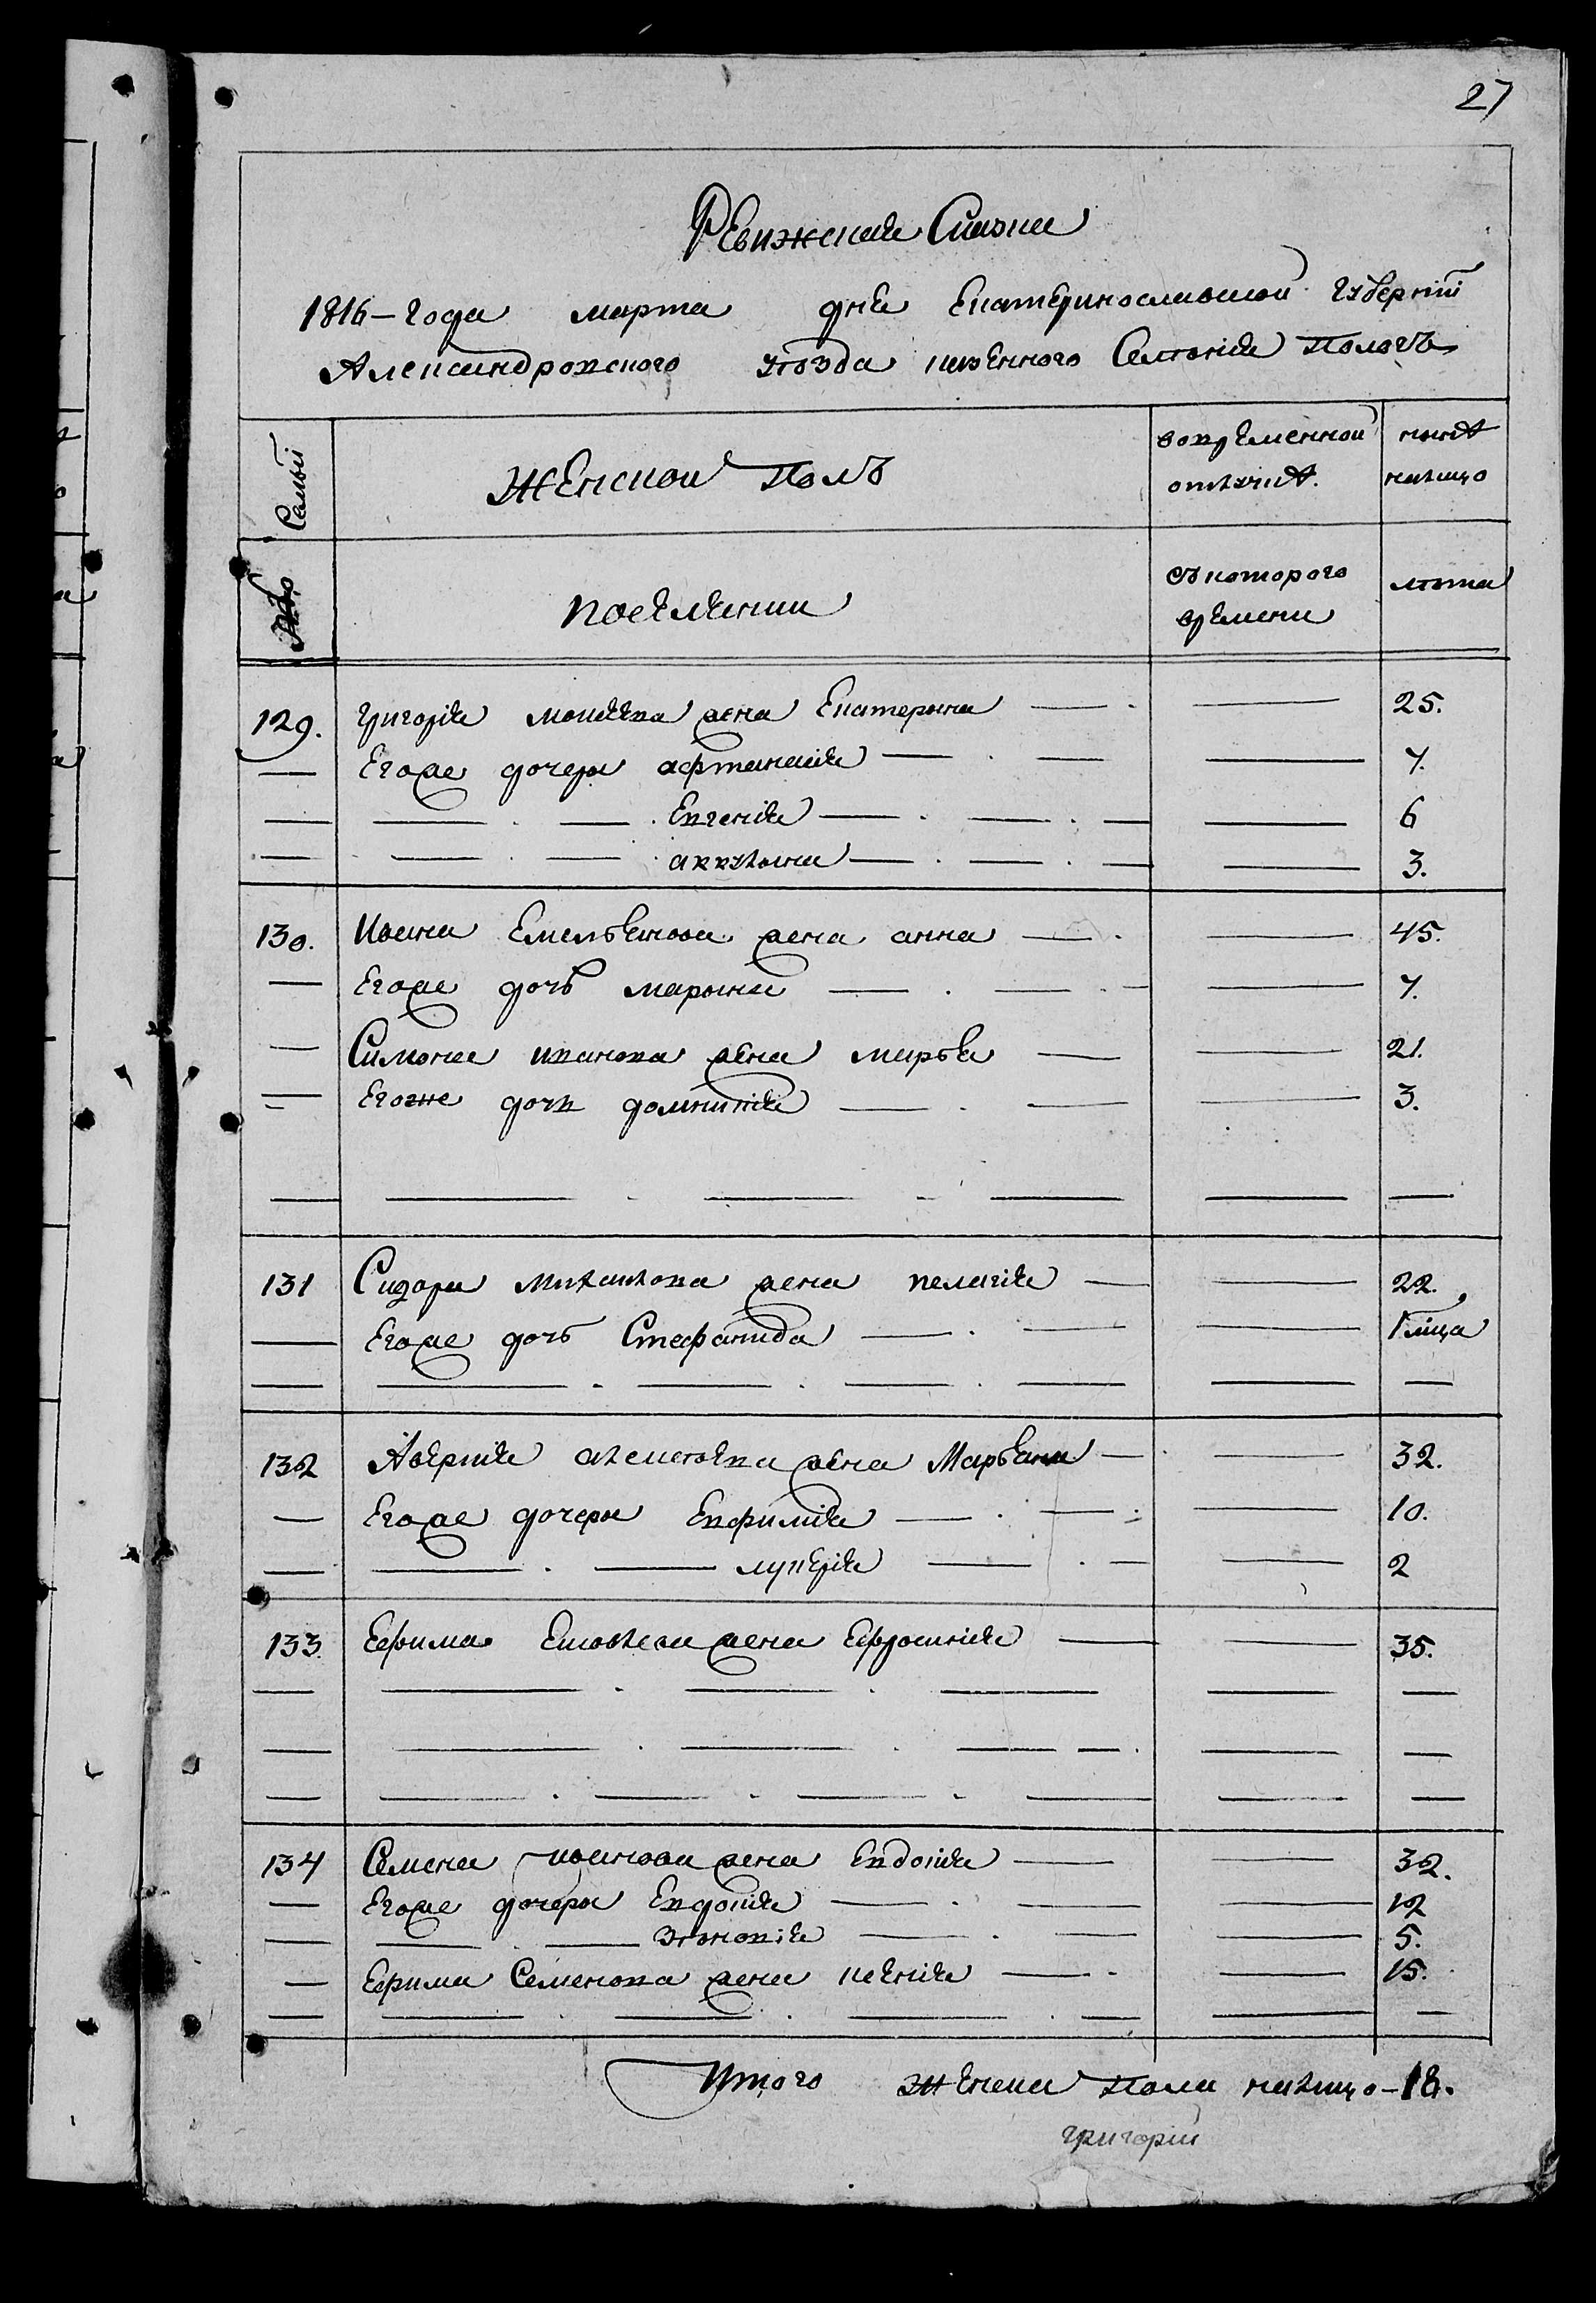 27
Ревижская Сказка
1816 – года марта дня Екатеринославской губернiи
Александровского уѣзда казенного Селенiя Пологъ
Семьи
женской полъ
во временной отлучкѣ
нынѣ налицо
поселянии
съ которого времени
лѣта
129. григорiя жена Екатерина — 25.
— Егоже дочери афтанасiя — 7.
— Евгенiя — 6
— 3.
130. Ивана Емельянова жена анна — 45.
— Егоже дочь марына — 7.
— Симона иванова жена марья — 21.
— Егоже дочь домникiя — 3.
131 Сидора михаилова жена пелагiя — 22.
— Егоже дочь Стефанида — 1 мцѧ
132 Аверкiя алексеева жена Марьяна — 32.
— Егоже дочери Евфимiя — 10.
— лукерiя — 2
133 Ефима жена Ефросинiя — 35.
134 Семена иванова жена Евдокiя — 32.
— Егоже дочери Евдокiя — 12
— зѣновiя — 5.
— Ефима Семенова жена ксенiя — 15.
Итого женска пола налицо – 18.
григорiи